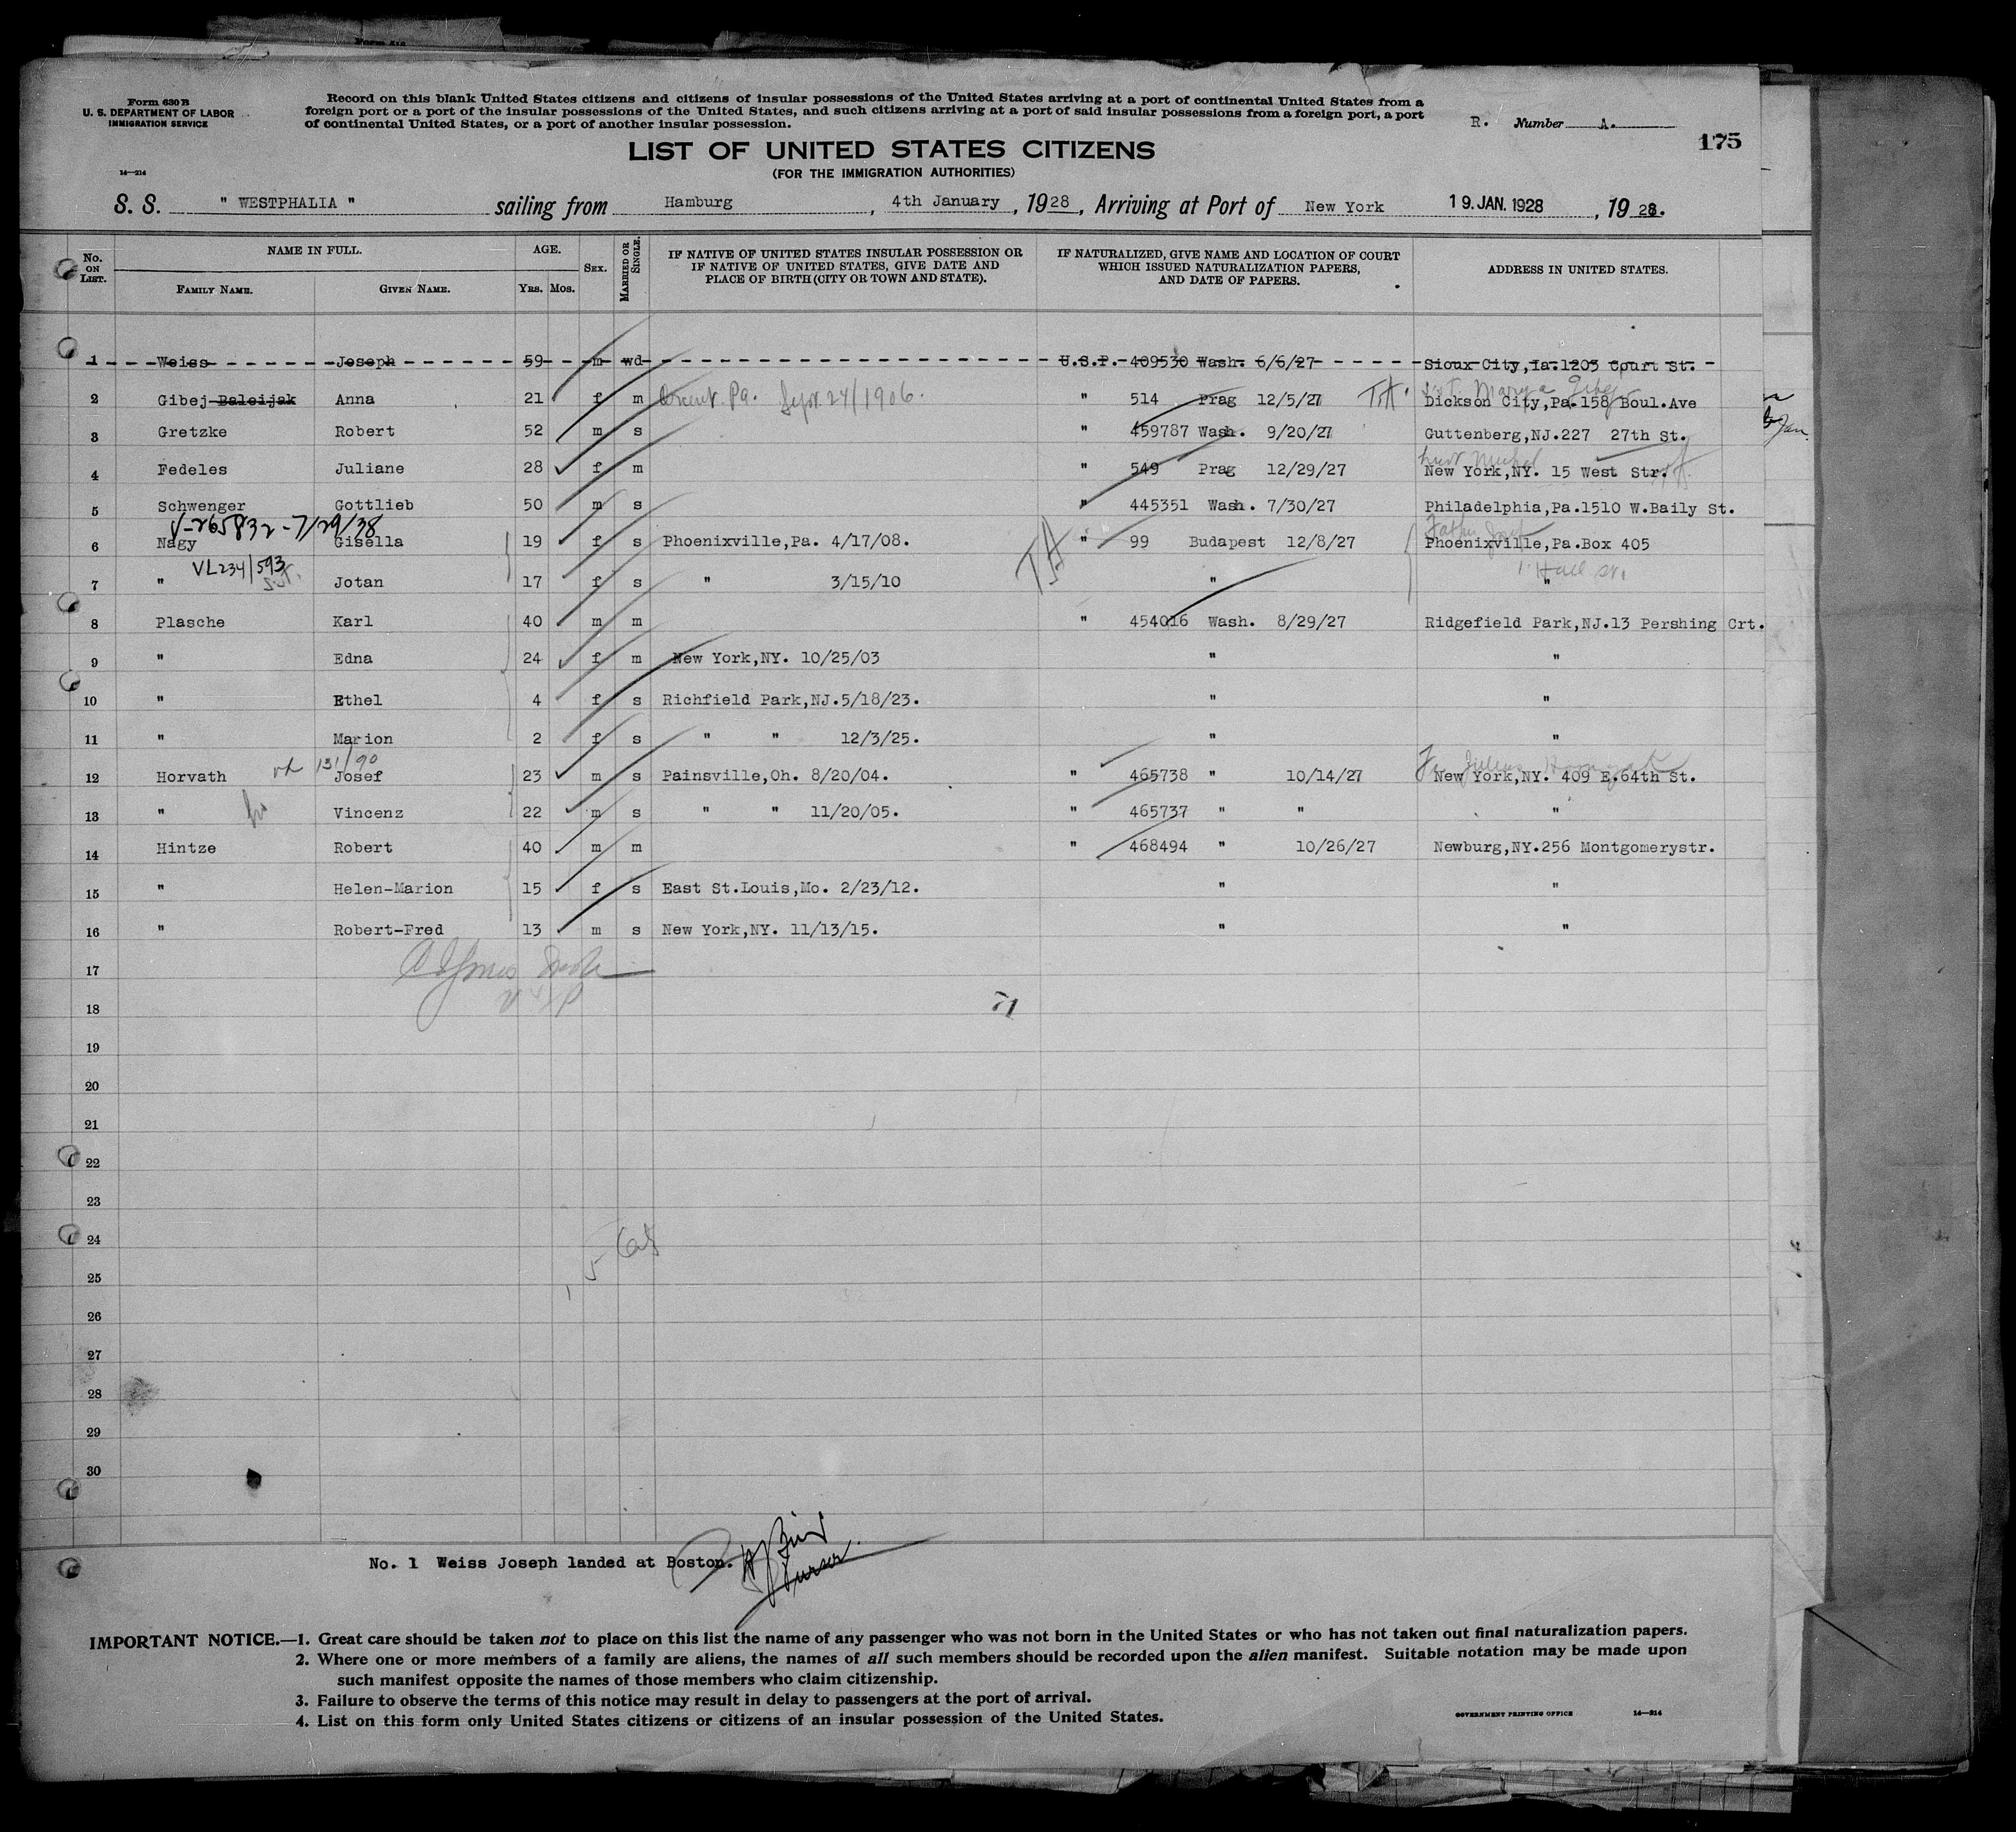 Form 630 B
U. S. DEPARTMENT OF LABOR
IMMIGRATION SERVICE
14—214
Record on this blank United States citizens and citizens of insular possessions of the United States arriving at a port of continental United States from a
foreign port or a port of the insular possessions of the United States, and such citizens arriving at a port of said insular possessions from a foreign port, a port
of continental United States, or a port of another insular possession.
R. Number A.
175
LIST OF UNITED STATES CITIZENS
(FOR THE IMMIGRATION AUTHORITIES)
S. S. " WESTPHALIA " sailing from Hamburg, 4th January, 1928, Arriving at Port of New York 19. JAN. 1928, 1928.
No. ON LIST. NAME IN FULL. FAMILY NAME. GIVEN NAME. AGE. YRS. MOS. SEX. MARRIED OR SINGLE. IF NATIVE OF UNITED STATES INSULAR POSSESSION OR IF NATIVE OF UNITED STATES, GIVE DATE AND PLACE OF BIRTH (CITY OR TOWN AND STATE). IF NATURALIZED, GIVE NAME AND LOCATION OF COURT WHICH ISSUED NATURALIZATION PAPERS, AND DATE OF PAPERS. ADDRESS IN UNITED STATES.
1 Weiss Joseph 59 m wd U.S.P. 409530 Wash. 6/6/27 Sioux City,Ia.1203 Court St.
2 Gibej Baleijak Anna 21 f m Pa. Sept. 24/1906. " 514 Prag 12/5/27 Dickson City,Pa.158 Boul.Ave
3 Gretzke Robert 52 m s " 459787 Wash. 9/20/27 Guttenberg,NJ.227 27th St.
4 Fedeles Juliane 28 f m " 549 Prag 12/29/27 New York,NY. 15 West Str.
5 Schwenger Gottlieb 50 m s " 445351 Wash. 7/30/27 Philadelphia,Pa.1510 W.Baily St.
V-265832-7/29/38
Father Josef
6 Nagy Gisella 19 f s Phoenixville,Pa. 4/17/08. " 99 Budapest 12/8/27 Phoenixville,Pa.Box 405
VL234/593
Hall St.
7 " Jotan 17 f s " 3/15/10 " "
8 Plasche Karl 40 m m " 454016 Wash. 8/29/27 Ridgefield Park,NJ.13 Pershing Crt.
9 " Edna 24 f m New York,NY. 10/25/03 " "
10 " Ethel 4 f s Richfield Park,NJ.5/18/23. " "
11 " Marion 2 f s " " 12/3/25. " "
131/90
12 Horvath Josef 23 m s Painsville,Oh. 8/20/04. " 465738 " 10/14/27 New York,NY. 409 E.64th St.
13 " Vincenz 22 m s " " 11/20/05. " 465737 " " "
14 Hintze Robert 40 m m " 468494 " 10/26/27 Newburg,NY.256 Montgomerystr.
15 " Helen-Marion 15 f s East St.Louis,Mo. 2/23/12. " "
16 " Robert-Fred 13 m s New York,NY. 11/13/15. " "
17
18 71
19
20
21
22
23
24
25
26
27
28
29
30
No. 1 Weiss Joseph landed at Boston.
Purser.
IMPORTANT NOTICE.—1. Great care should be taken not to place on this list the name of any passenger who was not born in the United States or who has not taken out final naturalization papers.
2. Where one or more members of a family are aliens, the names of all such members should be recorded upon the alien manifest. Suitable notation may be made upon
such manifest opposite the names of those members who claim citizenship.
3. Failure to observe the terms of this notice may result in delay to passengers at the port of arrival.
4. List on this form only United States citizens or citizens of an insular possession of the United States.
GOVERNMENT PRINTING OFFICE 14—214